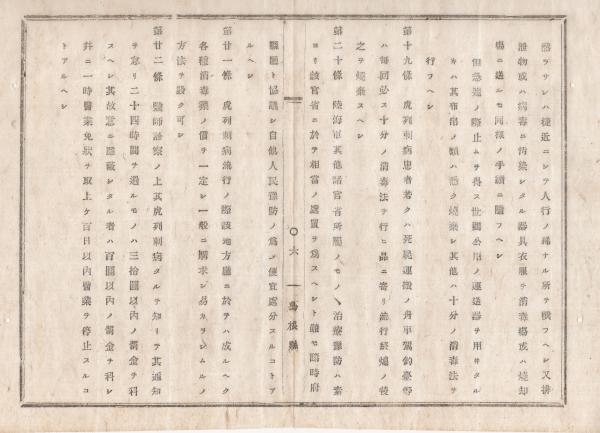 際ヲサシハ捷近ニシテ人行ノ稀ナル所ヲ撰フヘシ又排
泄物或ハ病毒ニ汚染シタル器具衣服ヲ消毒場或ハ焼却
場ニ送ルモ同様ノ手續ニ隨フヘシ
但急遽ノ際止ムヲ得ス世間公用ノ運送器ヲ用井タル
カハ其布帛ノ類ハ悉ク燒棄シ其他ハ十分ノ消毒法ヲ
行フヘシ
第十九條 虎列剌病患者若クハ死屍運搬ノ舟車駕釣臺等
ハ毎回必ス十分ノ消毒法ヲ行ヒ品ニ寄リ流行終熄ノ後
之ヲ燒棄スヘシ
第二十條 陸海軍其他諸官省所屬ノモノヽ治療豫防ハ素
ヨリ該官省ニ於テ相當ノ處置ヲ爲スヘシト雖モ臨時府
〇六 島根縣
縣廳ト協議シ自他人民豫防ノ爲メ便宜處分スルコトア
ルヘシ
第廿一條 虎列剌病流行ノ際該地方廳ニ於テハ成ルヘク
各種消毒藥ノ價ヲ一定シ一般ニ購求シ易カラシムルノ
方法ヲ設ク可シ
第廿二條 醫師診察ノ上其虎列剌病タルヲ知リテ其通知
ヲ怠リ二十四時間ヲ過ルモノハ三拾圓以内ノ罰金ヲ科
スヘシ其故意ニ隱蔽シタル者ハ百圓以内ノ罰金ヲ科シ
幷ニ一時醫業免狀ヲ取上ケ百日以内醫業ヲ停止スルコ
トアルヘシ